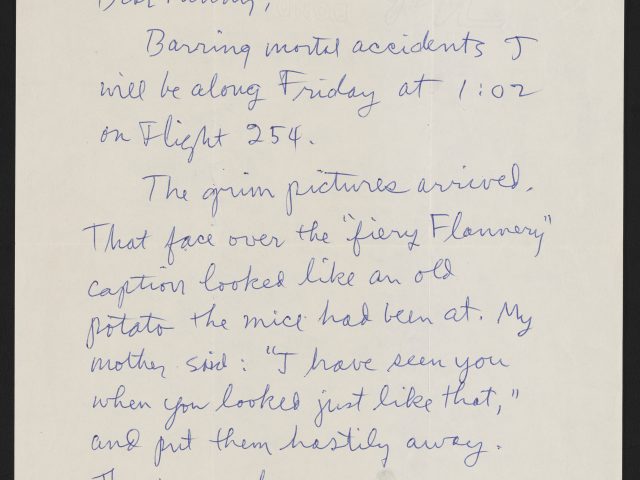 Barring mortal accidents I
will be along Friday at 1:02
on Flight 254.
The grim pictures arrived.
That face over the "fiery Flannery"
caption looked like an old
potato the mice had been at. My
mother said: "I have seen you
when you looked just like that,"
and put them hastily away.